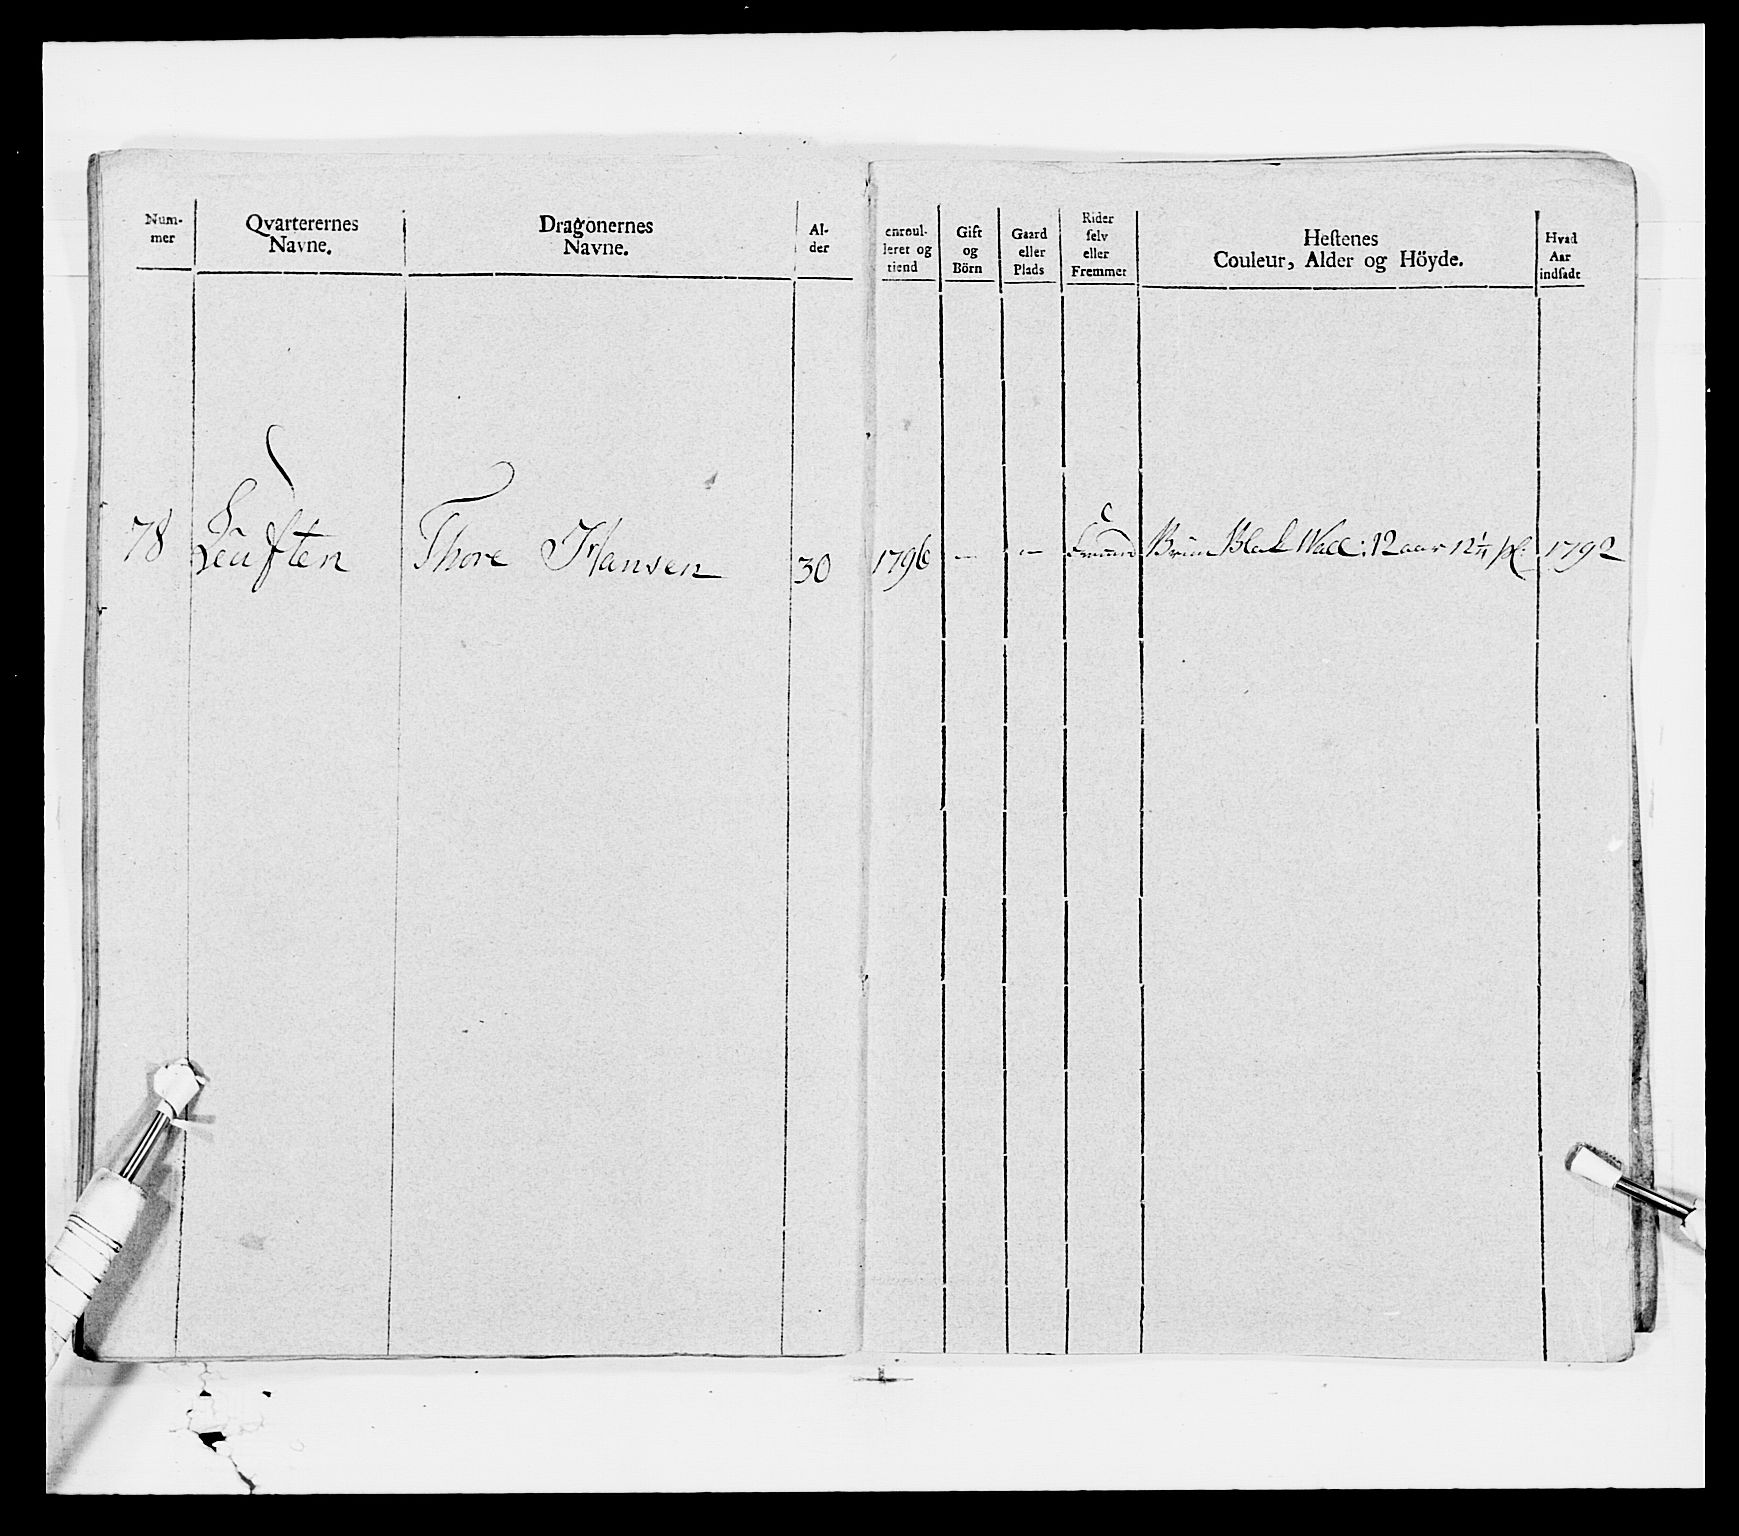 Num-
mer
Qvarterernes
Navne.
Dragonernes
Navne.
Al-
der
enroul-
leret og
tiend
Gift
og
Börn
Gaard
eller
Plads
Rider
selv
eller
Fremmet
Hestenes
Couleur, Alder og Höyde.
Hvad
Aar
indsadt
78 Thore Hansen 30 1796 — — Bruun Wall: 12 aar 12 1792